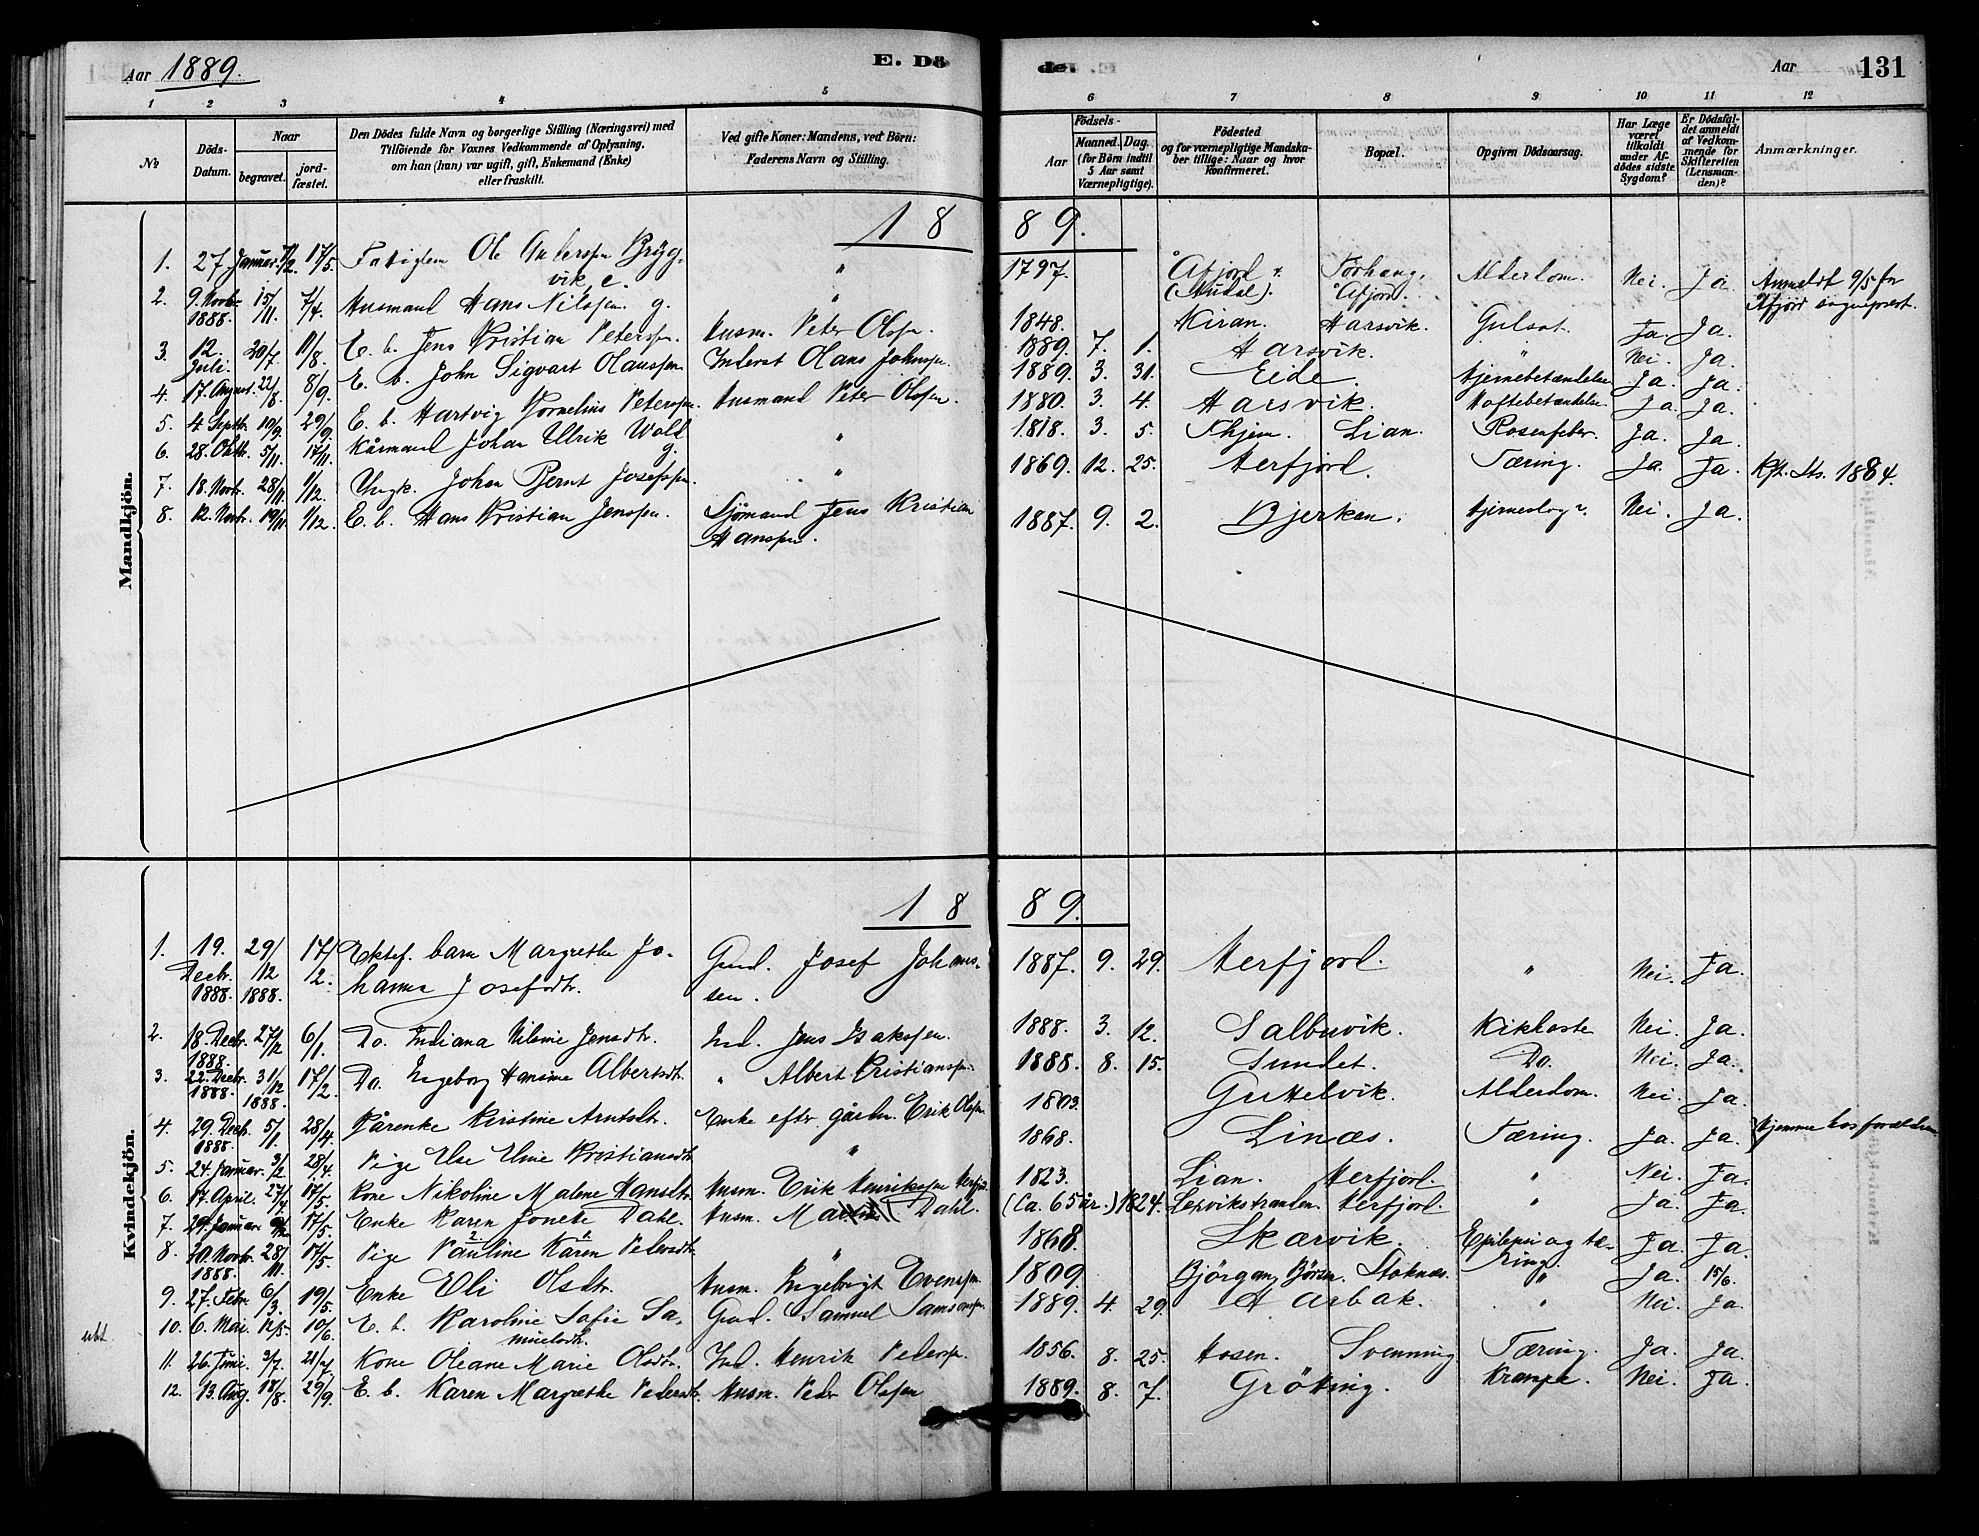 Aar 1889.
E. Dö
de.
Aar
131
1 2 3 4 5 6 7 8 9 10 11 12
No
Döds-Datum.
Naar
begravet.
jord-fæstet.
Den Dödes fulde Navn og borgerlige Stilling (Næringsvei) med
Tilföiende for Voxnes Vedkommende af Oplysning,
om han (hun) var ugift, gift, Enkemand (Enke)
eller fraskilt.
Ved gifte Koner: Mandens, ved Börn:
Faderens Navn og Stilling.
Födsels-
Aar
Maaned. Dag.
(for Börn indtil
5 Aar samt
Værnepligtige).
Födested
og for værnepligtige Mandska-
ber tillige: Naar og hvor
Konfirmeret.
Bopæl.
Opgiven Dödsaarsag.
Har Læge
været
tilkaldt
under Af-
dödes sidste
Sygdom?
Er Dödsfal-
det anmeldt
af Vedkom-
mende for
Skifteretten
(Lensman-
den)?
Anmærkninger.
Mandkjön.
18 89.
1. 27. Januar. 7/2. 17/5. Ole Anderssen Bryg-
vik, e. " 1797. Åfjord Åfjord. Alderdom. Nei. Ja. Anmeldt 9/5 for
Åfjord sogneprest.
2. 9. Novbr. 1888. 15/11. 7/4. Husmand Hans Nilssen g. " 1848. Kiran. Harsvik. Gulsot. Ja. Ja.
3. 12. Juli. 20/7 11/8. E. b. Jens Kristian Peterssen. Husm. Peter Olssen. 1889. 7. 1. Harsvik. " Nei. Ja.
4. 17. August. 22/8. 8/9. E. b. John Sigvart Olaussen. Inderst Olaus Johnssen. 1889. 3. 31. Eide. Hjernebetændelse Ja. Ja.
5. 4. Septbr. 19/9. 29/9. E. b. Hartvig Kornelius Peterssen. Husmand Peter Olssen. 1880. 3. 4. Harsvik. Hoftebetændelse. Ja. Ja.
6. 28. Oktbr. 5/11. 17/11. Kårmand Johan Ulrik Wall g. " 1818. 3. 5. Thjem. Lian. Rosenfeber. Ja. Ja.
7. 18. Novbr. 28/11. 1/12. Ungk. Johan Bernt Josefssen. " 1869. 12. 25. Herfjord. Tæring. Ja. Ja. Kft. Sts. 1884.
8. 12. Novbr. 19/11. 1/12. E. b. Hans Kristian Jenssen. Sjömand Jens Kristian
Hanssen. 1887. 9. 2. Bjerkan. Nei. Ja.
Kvindekjön.
18 89.
1. 19. Decbr. 1888. 29/12 1888. 17/2. Ektef. barn Margrethe Jo-
hanna Josefsdtr. Gmd. Josef Johans-
sen. 1887. 9. 29. Herfjord. " Nei. Ja.
2. 18. Decbr. 1888. 27/12 6/1. Do. Indiana Vilmine Jensdtr. Ind. Jens Isakssen. 1888. 3. 12. Salbuvik. Kikhoste Nei. Ja.
3. 22. Decbr. 1888. 31/12 1888. 17/2. Do. Ingeborg Hansine Albertsdtr. " Albert Kristianssen. 1888. 8. 15. Sundet. Do. Nei. Ja.
4. 29. Decb. 1888. 5/1. 28/4. Kårenke Kirstine Arntsdtr. Enke efter gårdbr. Erik Olssen. 1803. Guttelvik. Alderdom. Nei. Ja.
5. 24. Januar. 3/2. 28/4. Pige Else Eline Kristiansdtr. " 1868. Linæs. Tæring. Ja. Ja. Hjemme hos forældrene
6. 17. April. 27/4. 17/5. Kone Nikoline Malene Hansdtr. Husm. Erik Henrikssen Herfjord. 1823. Lian. Herfjord. " Nei. Ja.
7. 29. Januar. 17/5. Enke Karen Jonette Dahl. Husm. Dahl. (Ca. 65 år.) 1824. Lervikstranden. Herfjord. " Ja. Ja.
8. 20. Novbr. 1888. 28/11. 17/5. Pige Pauline Karen Pedersdtr. " 1868. Skarvik. Epilepsi og tæ-
ring. Ja. Ja.
9. 27. Febr. 6/3. 19/5. Enke Eli Olsdtr. Husm. Ingebrigt Evenssen. 1809. Bjørgan, Börsen. Stoknes. " Ja. 15/6.
ubt. 10. 6. Mai. 12/5. 10/6. E. b. Karoline Sofie Sa-
muelsdtr. Gmd. Samuel Samsonsen. 1889. 4. 29. Harbak. " Nei. Ja.
11. 26. Juni. 3/7. 21/7. Kone Oleane Marie Olsdtr. Ind. Henrik Pedersen. 1856. 8. 25. Hosen. Svenning. Tæring. Ja. Ja.
12. 13. Aug. 18/8. 29/9. E. b. Karen Margrethe Pedersdtr. Husm. Peder Olssen 1889. 8. 7. Gröting. Krampe. Nei. Ja.